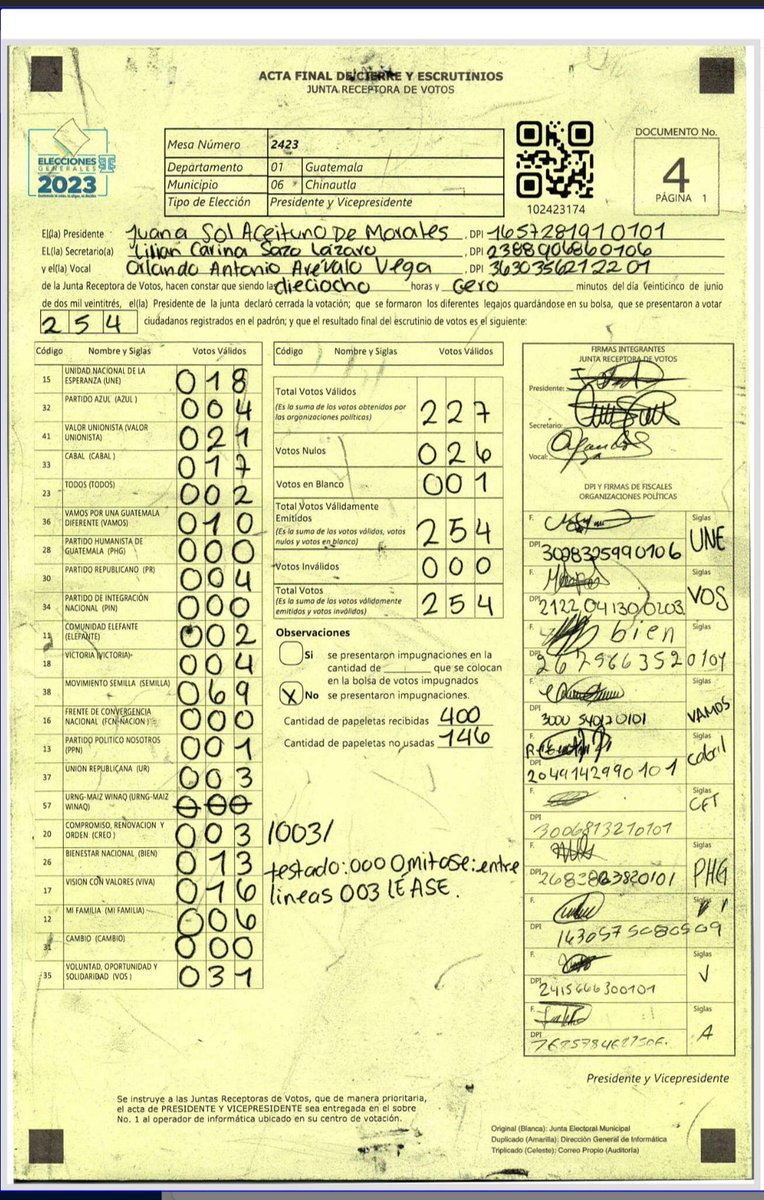 ACTA FINAL DE CIERRE Y ESCRUTINIOS
JUNTA RECEPTORA DE VOTOS
ELECCIONES
GENERALES
2023
Mesa Número 2423
Departamento 01 Guatemala
Municipio 06 Chinautla
Tipo de Elección Presidente y Vicepresidente
102423174
DOCUMENTO No.
4
PÁGINA 1
El(la) Presidente Juana Sol Aceituno De Morales, DPI 1657281910101
EL(la) Secretario(a) Lilian Carina Sazo Lázaro, DPI 2388906860106
y el(la) Vocal Orlando Antonio Arévalo Vega, DPI 3630356212201
de la Junta Receptora de Votos, hacen constar que siendo las dieciocho horas y cero minutos del día veinticinco de junio
de dos mil veintitrés, el(la) Presidente de la junta declaró cerrada la votación; que se formaron los diferentes legajos guardándose en su bolsa, que se presentaron a votar
254 ciudadanos registrados en el padrón; y que el resultado final del escrutinio de votos es el siguiente:
Código Nombre y Siglas Votos Válidos
15 UNIDAD NACIONAL DE LA ESPERANZA (UNE) 018
32 PARTIDO AZUL (AZUL ) 004
41 VALOR UNIONISTA (VALOR UNIONISTA) 021
33 CABAL (CABAL ) 017
23 TODOS (TODOS) 002
36 VAMOS POR UNA GUATEMALA DIFERENTE (VAMOS) 010
28 PARTIDO HUMANISTA DE GUATEMALA (PHG) 000
30 PARTIDO REPUBLICANO (PR) 004
34 PARTIDO DE INTEGRACIÓN NACIONAL (PIN) 000
11 COMUNIDAD ELEFANTE (ELEFANTE) 002
18 VICTORIA (VICTORIA) 004
38 MOVIMIENTO SEMILLA (SEMILLA) 069
16 FRENTE DE CONVERGENCIA NACIONAL (FCN-NACION ) 000
13 PARTIDO POLITICO NOSOTROS (PPN) 001
37 UNION REPUBLICANA (UR) 003
57 URNG-MAIZ WINAQ (URNG-MAIZ WINAQ) 000
20 COMPROMISO, RENOVACION Y ORDEN (CREO ) 003 /003/
26 BIENESTAR NACIONAL (BIEN) 013
17 VISION CON VALORES (VIVA) 016
12 MI FAMILIA (MI FAMILIA) 006
31 CAMBIO (CAMBIO) 000
35 VOLUNTAD, OPORTUNIDAD Y SOLIDARIDAD (VOS ) 031
testado:000 Omitase:entre
lineas 003 LEASE.
Código Nombre y Siglas Votos Válidos
Total Votos Válidos 227
(Es la suma de los votos obtenidos por las organizaciones políticas)
Votos Nulos 026
Votos en Blanco 001
Total Votos Válidamente Emitidos 254
(Es la suma de los votos válidos, votos nulos y votos en blanco)
Votos Inválidos 000
Total Votos 254
(Es la suma de los votos válidamente emitidos y votos inválidos)
Observaciones
Si se presentaron impugnaciones en la
cantidad de ______ que se colocan
en la bolsa de votos impugnados
X No se presentaron impugnaciones.
Cantidad de papeletas recibidas 400
Cantidad de papeletas no usadas 146
FIRMAS INTEGRANTES
JUNTA RECEPTORA DE VOTOS
Presidente:
Secretario:
Vocal:
DPI Y FIRMAS DE FISCALES
ORGANIZACIONES POLÍTICAS
F. Siglas UNE
DPI
F. Siglas VOS
DPI 2122041300203
F. bien
F. Siglas VAMOS
DPI
F. Siglas cabal
DPI 2049142990101
F. Siglas
DPI 3006813210101
F. Siglas PHG
DPI
F. Siglas
DPI
F. Siglas V
DPI 2415666300101
F. Siglas A
DPI
Presidente y Vicepresidente
Se instruye a las Juntas Receptoras de Votos, que de manera prioritaria,
el acta de PRESIDENTE Y VICEPRESIDENTE sea entregada en el sobre
No. 1 al operador de informática ubicado en su centro de votación.
Original (Blanca): Junta Electoral Municipal
Duplicado (Amarilla): Dirección General de Informática
Triplicado (Celeste): Correo Propio (Auditoría)